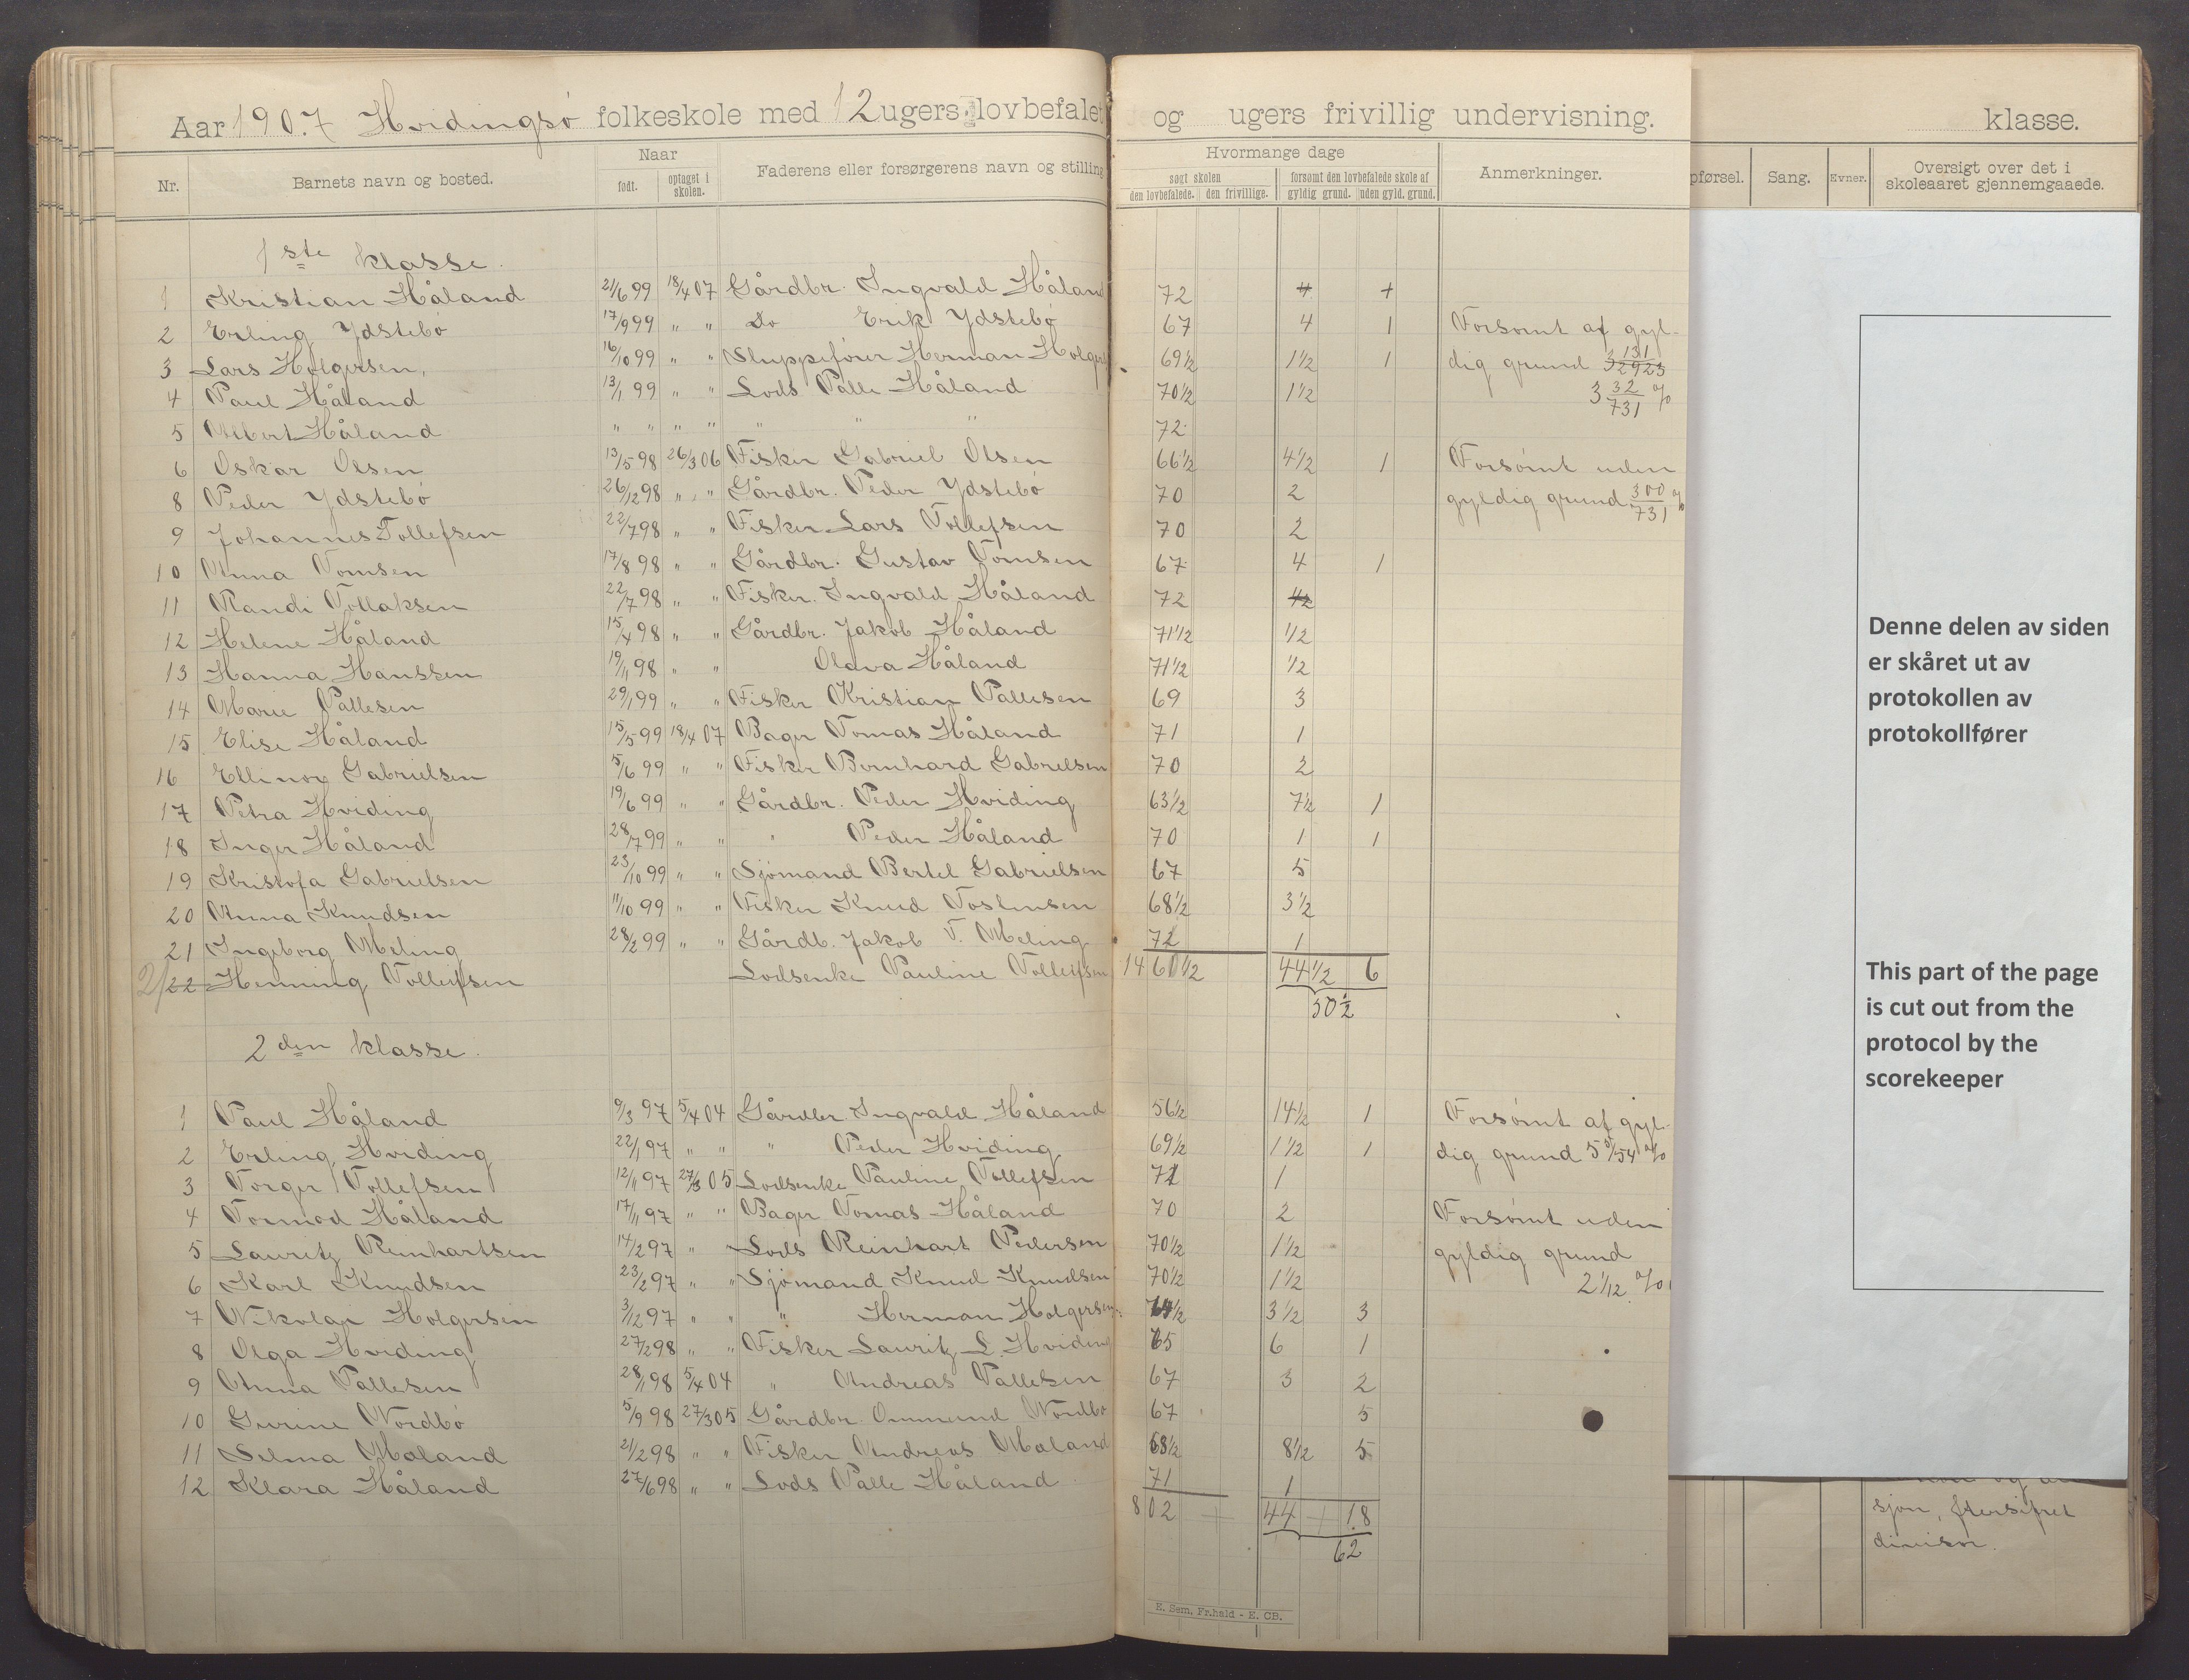 Aar 1907 Hvidingsø folkeskole med 12 ugers lovbefalet og ugers frivillig undervisning.
klasse.
Nr. Barnets navn og bosted. Naar født. optaget i skolen. Faderens eller forsørgerens navn og stilling
Hvormange dage søgt skolen den lovbefalede. den frivillige. forsømt den lovbefalede skole af gyldig grund. uden gyld. grund. Anmerkninger.
pførsel. Sang. Evner. Oversigt over det i skoleaaret gjennemgaaede.
1ste klasse.
1 Kristian Håland 21/6 99 18/4 07 Gårdbr. Ingvald Håland 72
2 Erling Ydstebø 17/9 99 " " Do Erik Ydstebø 67 4 1 Forsømt af gyl-
3 Lars Holgersen, 16/10 99 " " Sluppefører Herman Holgers 69 1/2 1 1/2 1 dig grund
4 Paul Håland 13/1 99 " " Lods Palle Håland 70 1/2 1 1/2 3 32/731 %
5 Albert Håland " " " " " " " 72
6 Oskar Olsen 13/5 98 26/3 06 Fisker Gabriel Olsen 66 1/2 4 1/2 1 Forsømt uden
8 Peder Ydstebø 26/12 98 " " Gårdbr. Peder Ydstebø 70 2 gyldig grund 300/731 %
9 Johannes Tollefsen 22/7 98 " " Fisker Lars Tollefsen 70 2
10 Anna Tomsen 17/8 98 " " Gårdbr. Gustav Tomsen 67 4 1
11 Randi Tollaksen 22/7 98 " " Fisker. Ingvald Håland 72
12 Helene Håland 15/4 98 " " Gårdbr. Jakob Håland 71 1/2 1/2
13 Hanna Hanssen 19/11 98 " " Olava Håland 71 1/2 1/2
14 Marie Pallesen 29/1 99 " " Fisker Kristian Pallesen 69 3
15 Elise Håland 15/5 99 18/4 07 Bager Tomas Håland 71 1
16 Ellinor Gabrielsen 5/6 99 " " Fisker Bernhard Gabrielsen 70 2
17 Petra Hviding 19/6 99 " " Gårdbr. Peder Hviding 63 1/2 7 1/2 1
18 Inger Håland 28/7 99 " " " Peder Håland 70 1 1
19 Kristofa Gabrielsen 23/10 99 " " Sjømand Bertel Gabrielsen 67 5
20 Anna Knudsen 11/10 99 " " Fisker Knud Toslensen 68 1/2 3 1/2
21 Ingeborg Meling 28/2 99 " " Gårdb. Jakob T. Meling 72 1
22 Henning Tolleifsen Lodsenke Pauline Tolleifsen 1460 1/2 44 1/2 6
50 1/2
2den klasse.
1 Paul Håland 9/3 97 5/4 04 Gårdbr Ingvald Håland 56 1/2 14 1/2 1 Forsømt af gyl-
2 Erling Hviding 22/1 97 " " " Peder Hviding 69 1/2 1 1/2 1 dig grund 5 5/54 %
3 Torger Tollefsen 12/11 97 27/3 05 Lodsenke Pauline Tollefsen 71 1
4 Tormod Håland 17/11 97 " " Bager Tomas Håland 70 2 Forsømt uden
5 Lauritz Reinhartsen 14/2 97 " " Lods Reinhart Pedersen 70 1/2 1 1/2 gyldig grund
6 Karl Knudsen 23/2 97 " " Sjømand Knud Knudsen 70 1/2 1 1/2 2 1/12 %
7 Nikolai Holgersen 3/12 97 " " " Herman Holgersen 3 1/2 3
8 Olga Hviding 27/2 98 " " Fisker Lauritz L. Hviding 65 6 1
9 Anna Pallesen 28/1 98 5/4 04 " Andreas Pallesen 67 3 2
10 Gurine Nordbø 5/9 98 27/3 05 Gårdbr. Ommund Nordbø 67 5
11 Selma Maland 21/2 98 " " Fisker Andreas Maland 58 1/2 8 1/2 5
12 Klara Håland 27/6 98 " " Lods Palle Håland 71 1
802 44 18
62
E. Sem, Fr.hald - E. CB.
Denne delen av siden
er skåret ut av
protokollen av
protokollfører
This part of the page
is cut out from the
protocol by the
scorekeeper
sjon, flersifret
divisor.